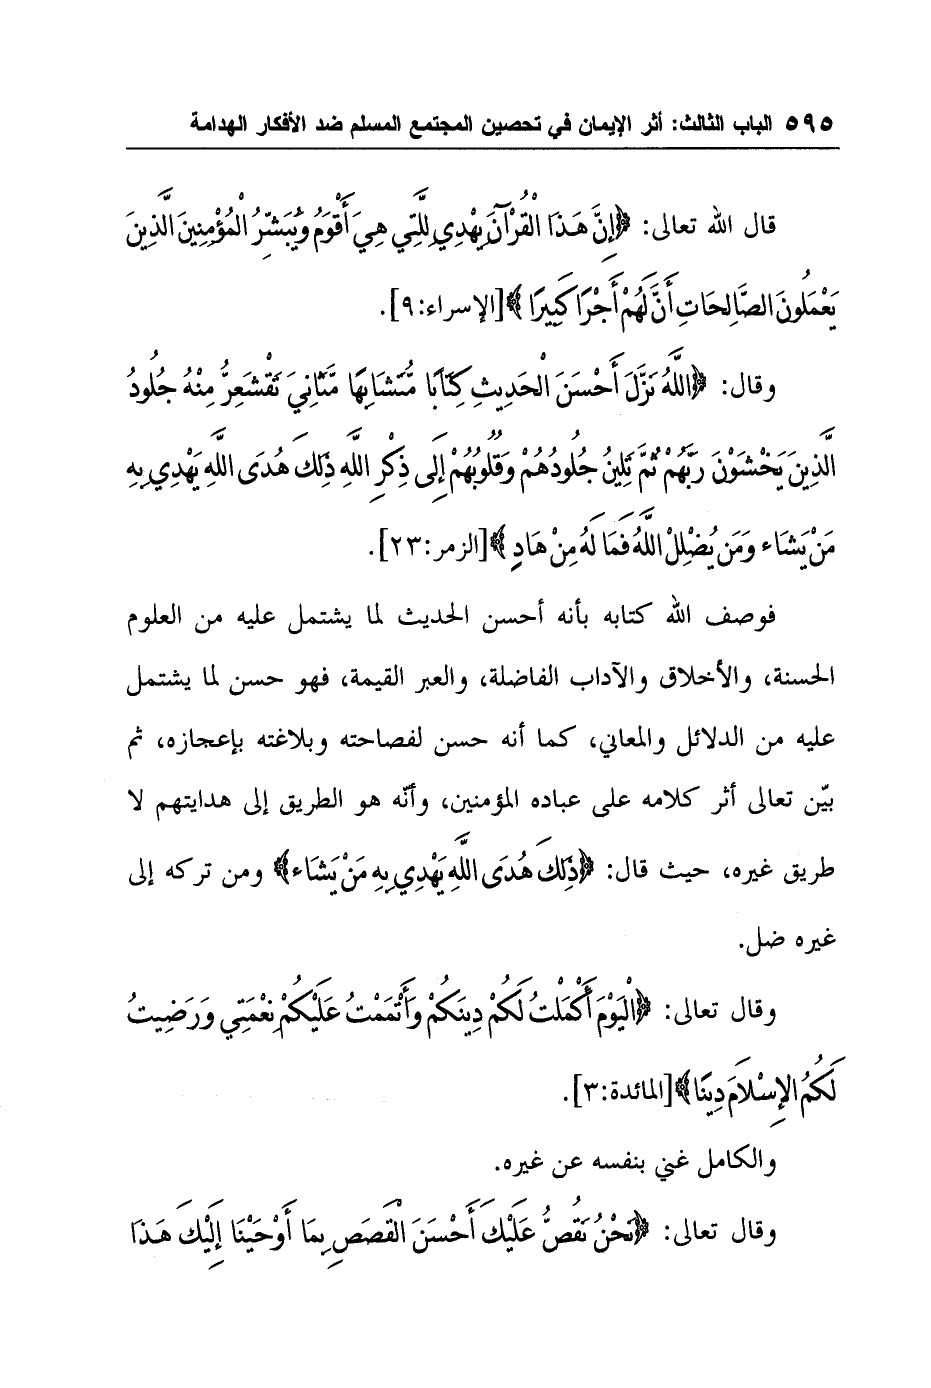 ٥٩٥ الباب الثالث: أثر الإيمان في تحصين المجتمع المسلم ضد الأفكار الهدامة
قال الله تعالى: ﴿إِنَّ هَذَا الْقُرْآنَ يَهْدِي لِلَّتِي هِيَ أَقْوَمُ وَيُبَشِّرُ الْمُؤْمِنِينَ الَّذِينَ
يَعْمَلُونَ الصَّالِحَاتِ أَنَّ لَهُمْ أَجْرًا كَبِيرًا ﴾[الإسراء:٩].
وقال: ﴿اللَّهُ نَزَّلَ أَحْسَنَ الْحَدِيثِ كِتَابًا مُّتَشَابِهًا مَّثَانِيَ تَقْشَعِرُّ مِنْهُ جُلُودُ
الَّذِينَ يَخْشَوْنَ رَبَّهُمْ ثُمَّ تَلِينُ جُلُودُهُمْ وَقُلُوبُهُمْ إِلَى ذِكْرِ اللَّهِ ذَلِكَ هُدَى اللَّهِ يَهْدِي بِهِ
مَنْ يَشَاء وَمَن يُضْلِلْ اللَّهُ فَمَا لَهُ مِنْ هَادٍ ﴾[الزمر:٢٣].
فوصف الله كتابه بأنه أحسن الحديث لما يشتمل عليه من العلوم
الحسنة، والأخلاق والآداب الفاضلة، والعبر القيمة، فهو حسن لما يشتمل
عليه من الدلائل والمعاني، كما أنه حسن لفصاحته وبلاغته بإعجازه، ثم
بيّن تعالى أثر كلامه على عباده المؤمنين، وأنّه هو الطريق إلى هدايتهم لا
طريق غيره، حيث قال: ﴿ذَلِكَ هُدَى اللَّهِ يَهْدِي بِهِ مَنْ يَشَاء﴾ ومن تركه إلى
غيره ضل.
وقال تعالى: ﴿الْيَوْمَ أَكْمَلْتُ لَكُمْ دِينَكُمْ وَأَتْمَمْتُ عَلَيْكُمْ نِعْمَتِي وَرَضِيتُ
لَكُمُ الإِسْلَامَ دِينًا﴾[المائدة:٣].
والكامل غني بنفسه عن غيره.
وقال تعالى: ﴿نَحْنُ نَقُصُّ عَلَيْكَ أَحْسَنَ الْقَصَصِ بِمَا أَوْحَيْنَا إِلَيْكَ هَذَا